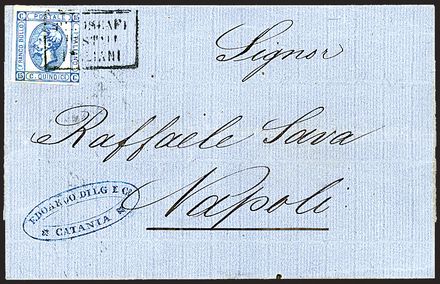 C POSTALE C
15
FRANCO BOLLO
ITALIANO
15
C. QUINDICI C
Signor
Raffaele Sava
Napoli
EDOARDO DILG E C.
CATANIA